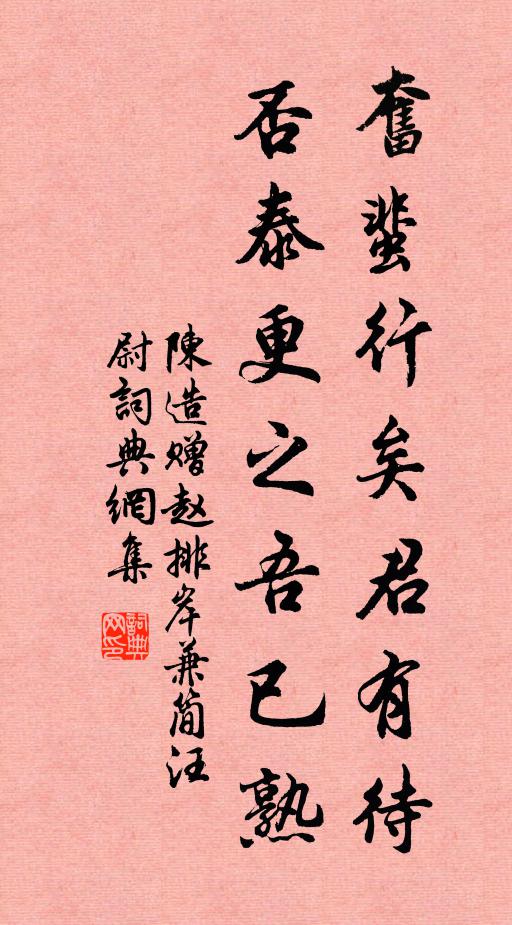 奮蜚行矣君有待
否泰更之吾已熟
陳造赠赵排岸兼简汪
尉詞典網集
詞典
网印